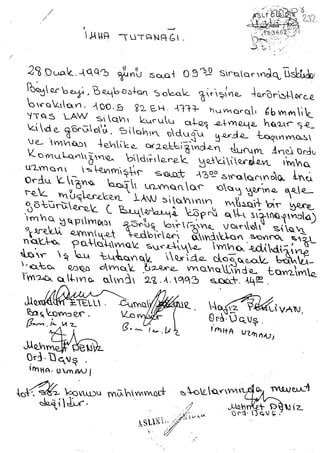 İMHA TUTANAĞI.
28 Ocak.1993 günü saat 0930 sıralarında, Üsküdar
Beylerbeyi, Beybostan sokak girişine teröristlerce
bırakılan. 100.5 82 EH. 1777 numaralı 66mmlik
YTAS LAW silahı kurulu ateş etmeye hazır şe-
kilde görüldü. Silahın olduğu yerde taşınması
ve imhası tehlike arzettiğinden durum 1nci Ordu
Komutanlığına bildirilerek yetkililerden imha
uzmanı istenmiştir saat 1300 sıralarında 1nci
Ordu K.lığına bağlı uzmanlar olay yerine gele-
rek müştereken LAW silahının müsait bir yere
götürülerek (Beylerbeyi köprü altı sığınağında)
imha yapılması görüş birliğine varıldı silah
gerekli emniyet tedbirleri alındıktan sonra
nakta patlatılmak suretiyle imha edildiğine
dair iş bu tutanak ileride doğacak
esas olmak üzere mahallinde tanzimle
imza altına alındı 28.1.1993 saat 1400.
Başkomser. Komser PEHLİVAN.
Ord. Üçvş.
İMHA UZMANI
Mehmet DENİZ
Ord. Üçvş.
İMHA. UZMANI
Not: Söz konusu mühimmat stoklarımızda mevcut
değildir.
Mehmet DENİZ
Ord. Üçvş.
232